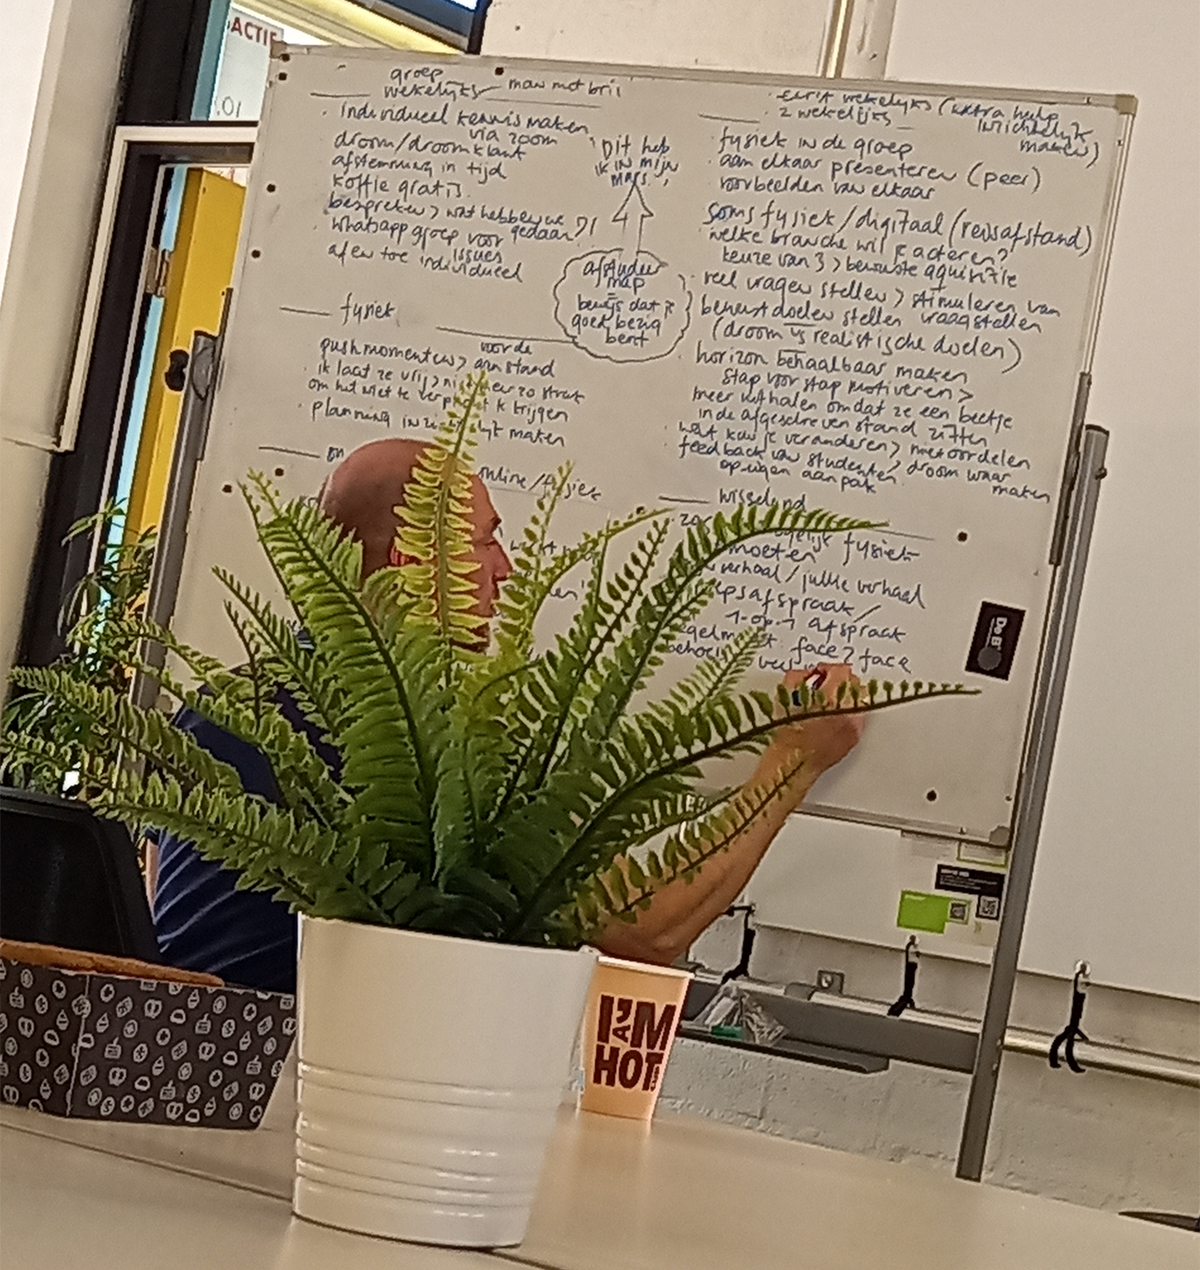 ACTIE
groep
wekelijks — man met bril
· individueel kennis maken
via zoom
droom/droomklant
afstemming in tijd
koffie gratis
bespreken > wat hebben we
gedaan?!
· whatsapp groep voor
issues
af en toe individueel
fysiek
pushmomenten >
voor de
aanstand
· ik laat ze vrij >
om het niet te
krijgen
· planning
maken
online/fysiek
"Dit heb
ik in mijn
mars"
afstudeer
map
=
bewijs dat je
goed bezig
bent
· eerst wekelijks (extra hulp
inzichtelijk
maken)
· 2 wekelijks
fysiek in de groep
· aan elkaar presenteren (peer)
· voorbeelden van elkaar
soms fysiek/digitaal (reisafstand)
· welke branche wil je acteren?
keuze van 3 > bewuste aquisitie
· veel vragen stellen > stimuleren van
vraagstellen
bewust doelen stellen
(droom vs realistische doelen)
· horizon behaalbaar maken
stap voor stap motiveren >
meer uithalen omdat ze een beetje
in de afgeschreven stand zitten
· wat kun je veranderen > niet oordelen
· feedback van studenten > droom waar
maken
op eigen aanpak
wisselend
fysiek
moeten
verhaal/jullie verhaal
1-op-1 afspraak
face2face
De B
I'M
HOT